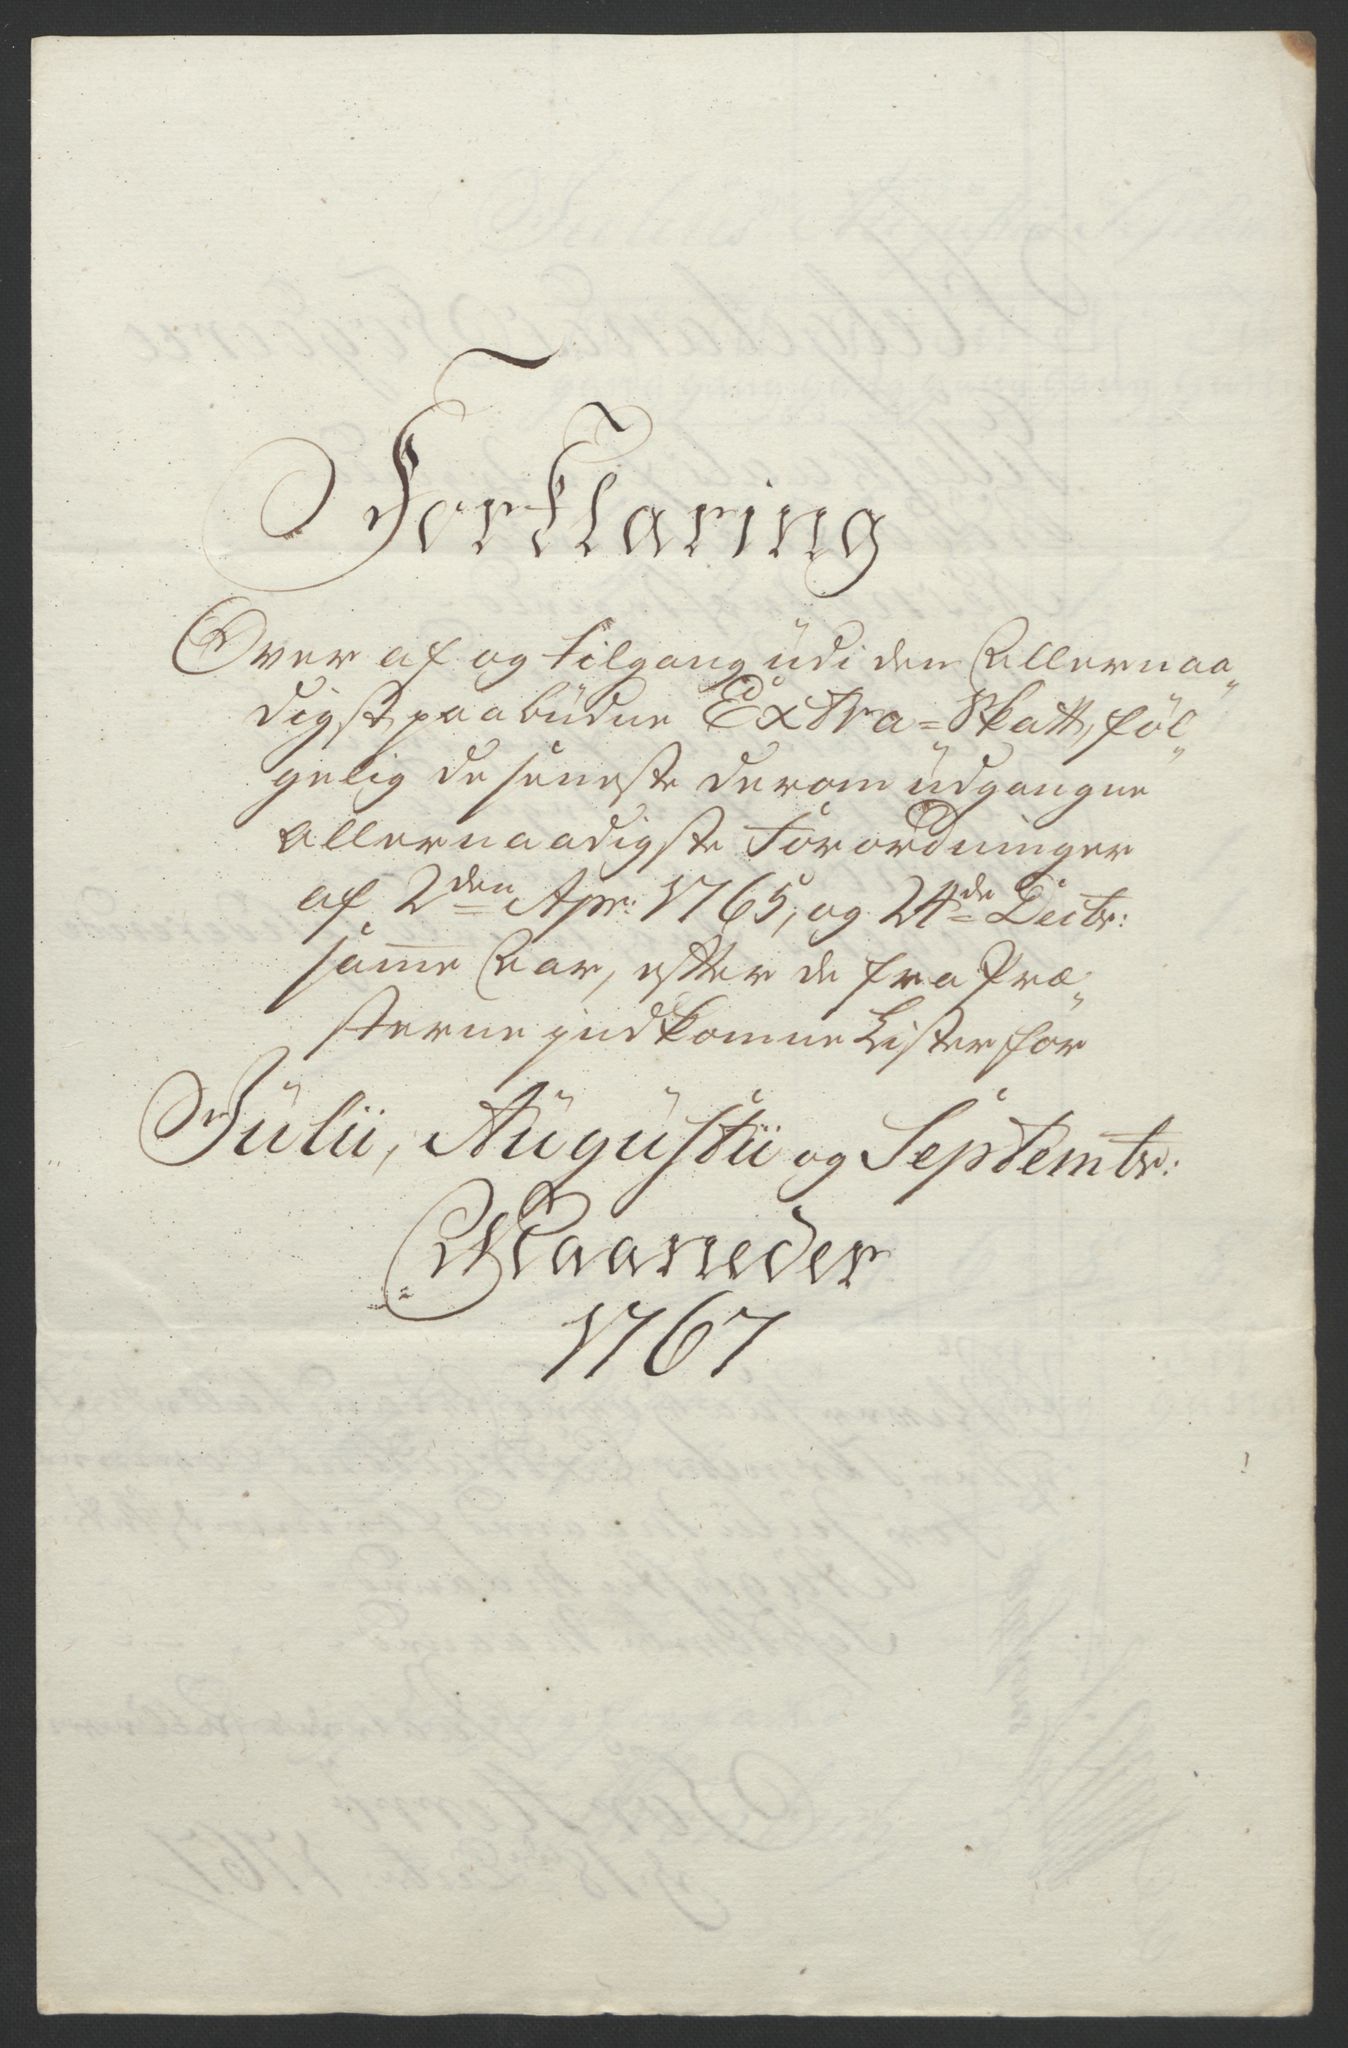 Forklaring
Over af og tilgang üdi den Allernaa„
digst paabüdne Extra=Skatt, føl„
gelig de seneste derom üdgangne
allernaadigste Forordninger
af 2den Apr: 1765, og 24de Decbr:
samme Aar, efter de fra Præ„
sterne jndkomne Lister for
Jülii, Augüstii og Septembr:
Maaneder
1767